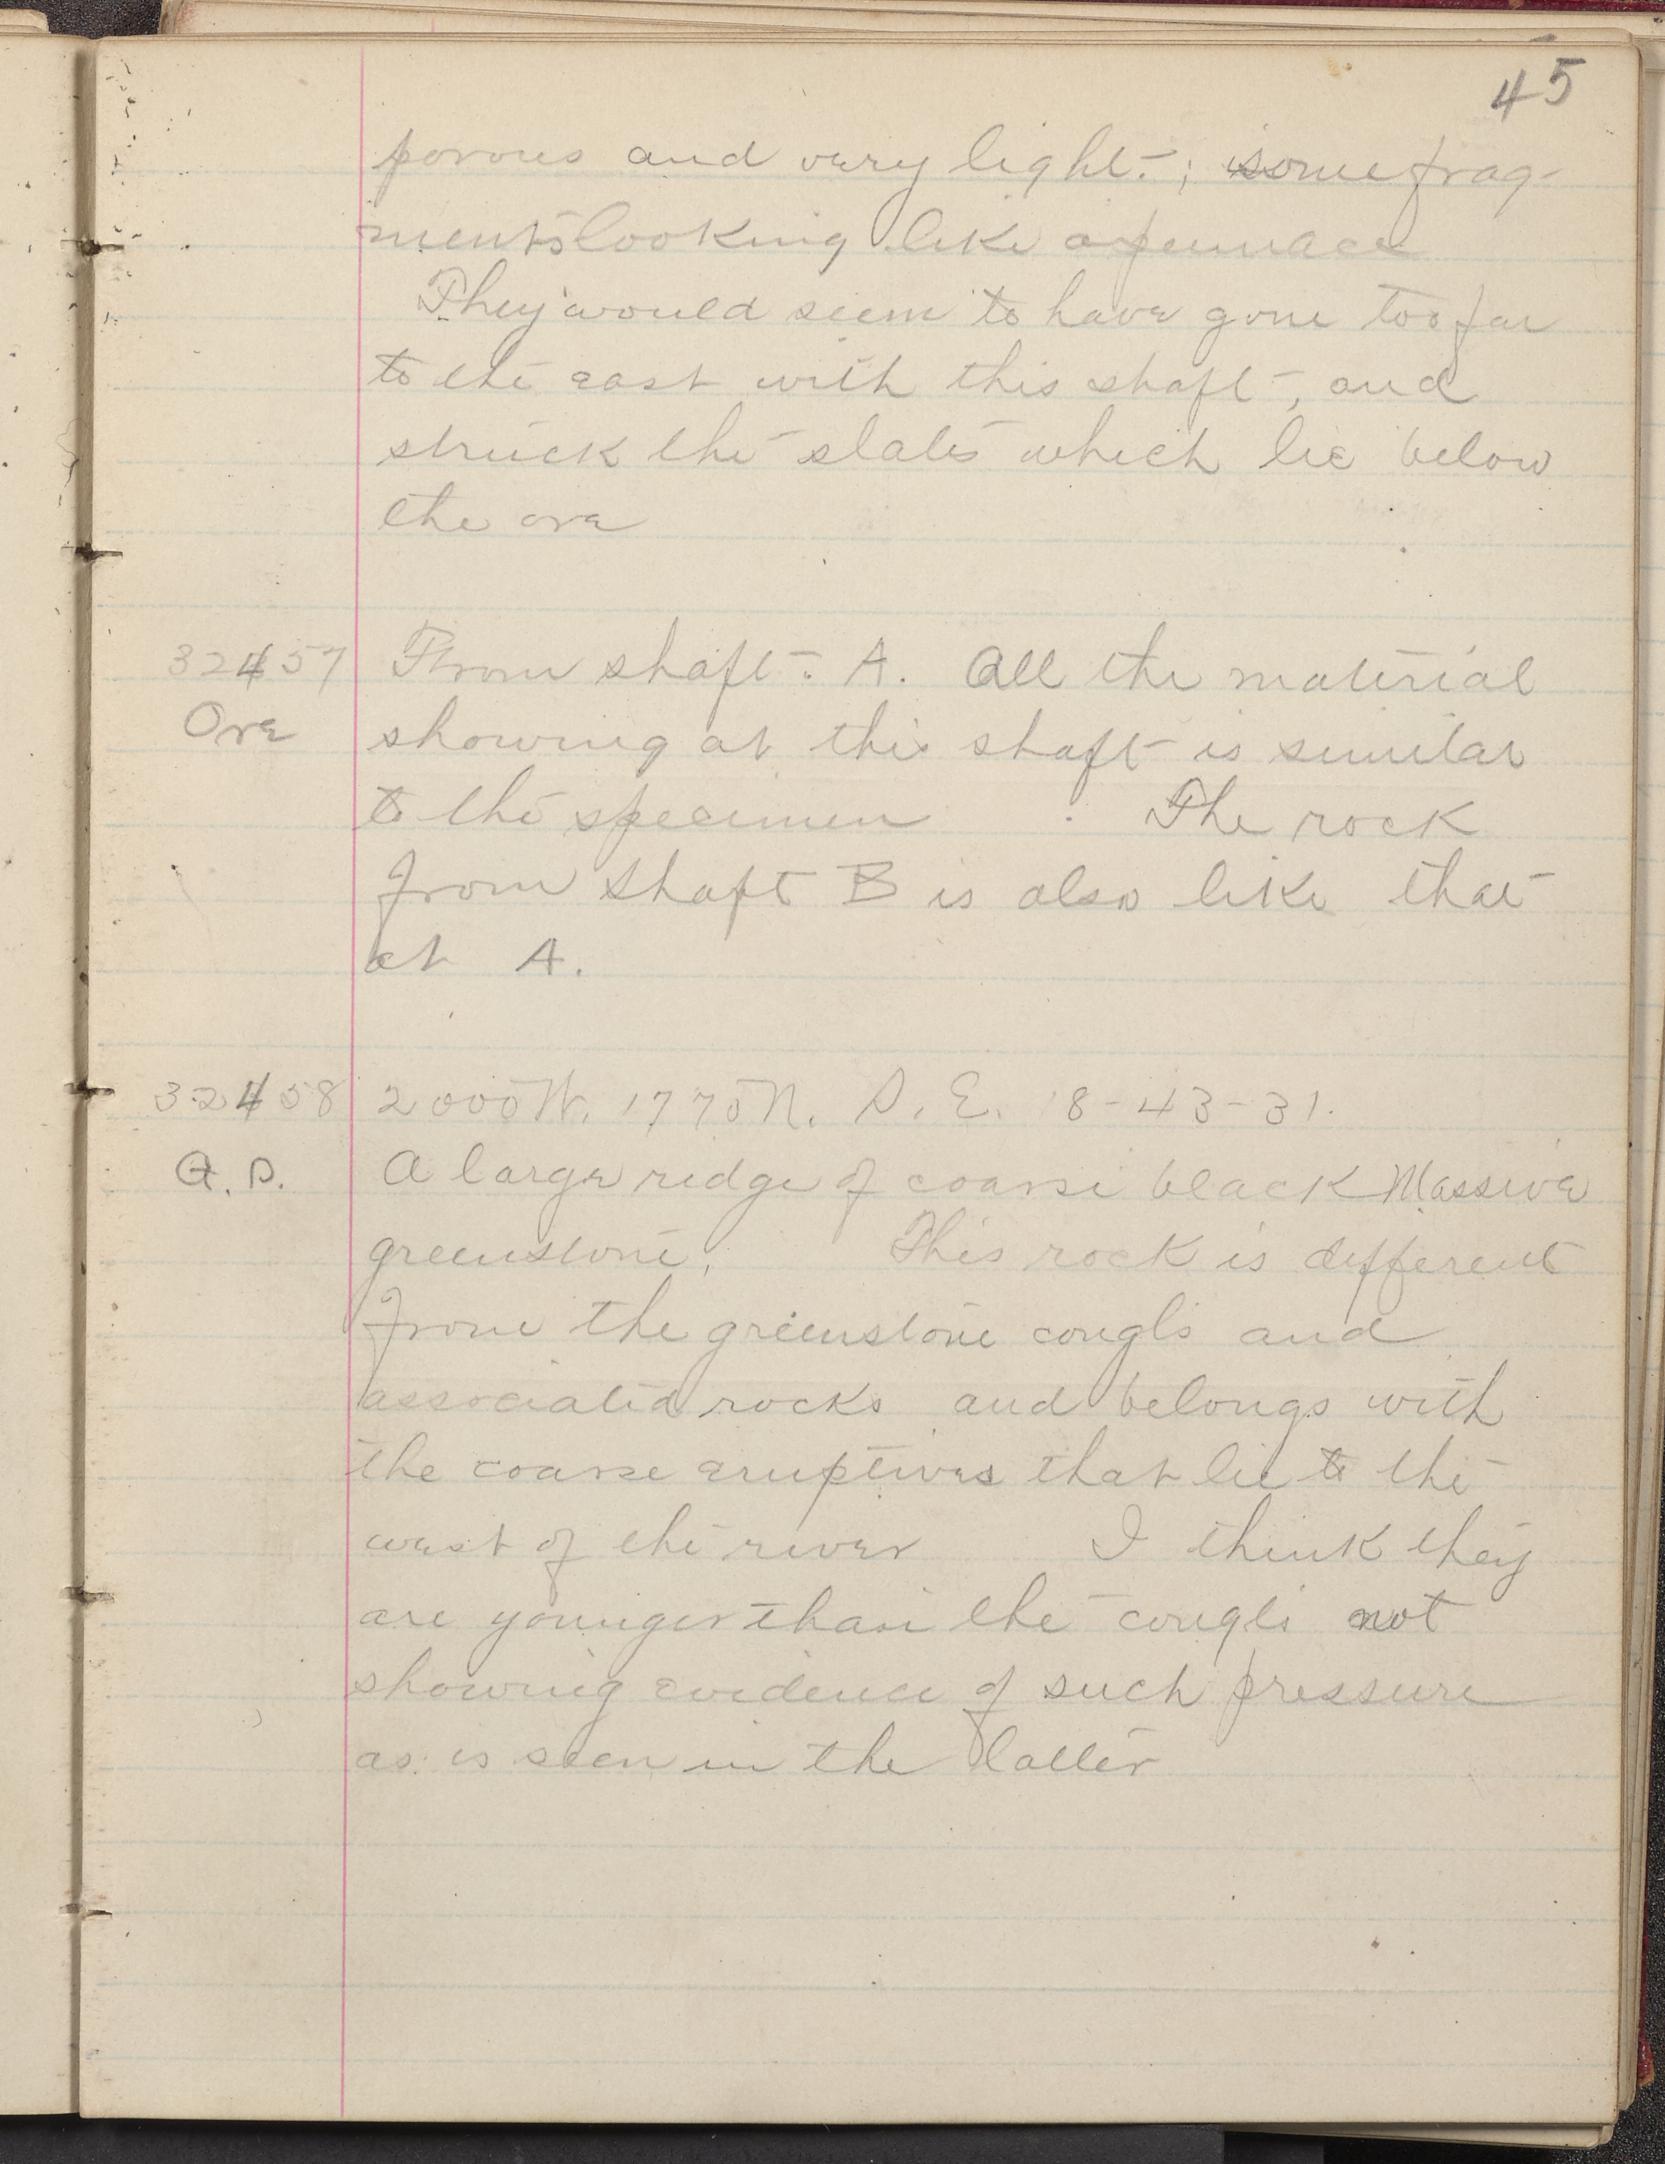 45
porous and very light.; some frag-
ments looking like a furnace
They would seem to have gone too far
to the east with this shaft, and
struck the slates which lie below
the ore
32457 From shaft. A. All the material
Ore showing at this shaft is similar
to the specimen. The rock
from shaft B is also like that
at A.
32458 2000 W. 1770 N. S. E. 18-43-31.
A large ridge of coarse black Massive
greenstone. This rock is different
from the greenstone congls and
associated rocks and belongs with
the coarse eruptives that lie to the
west of the river I think they
are younger than the congls not
showing evidence of such pressure
as is seen in the latter